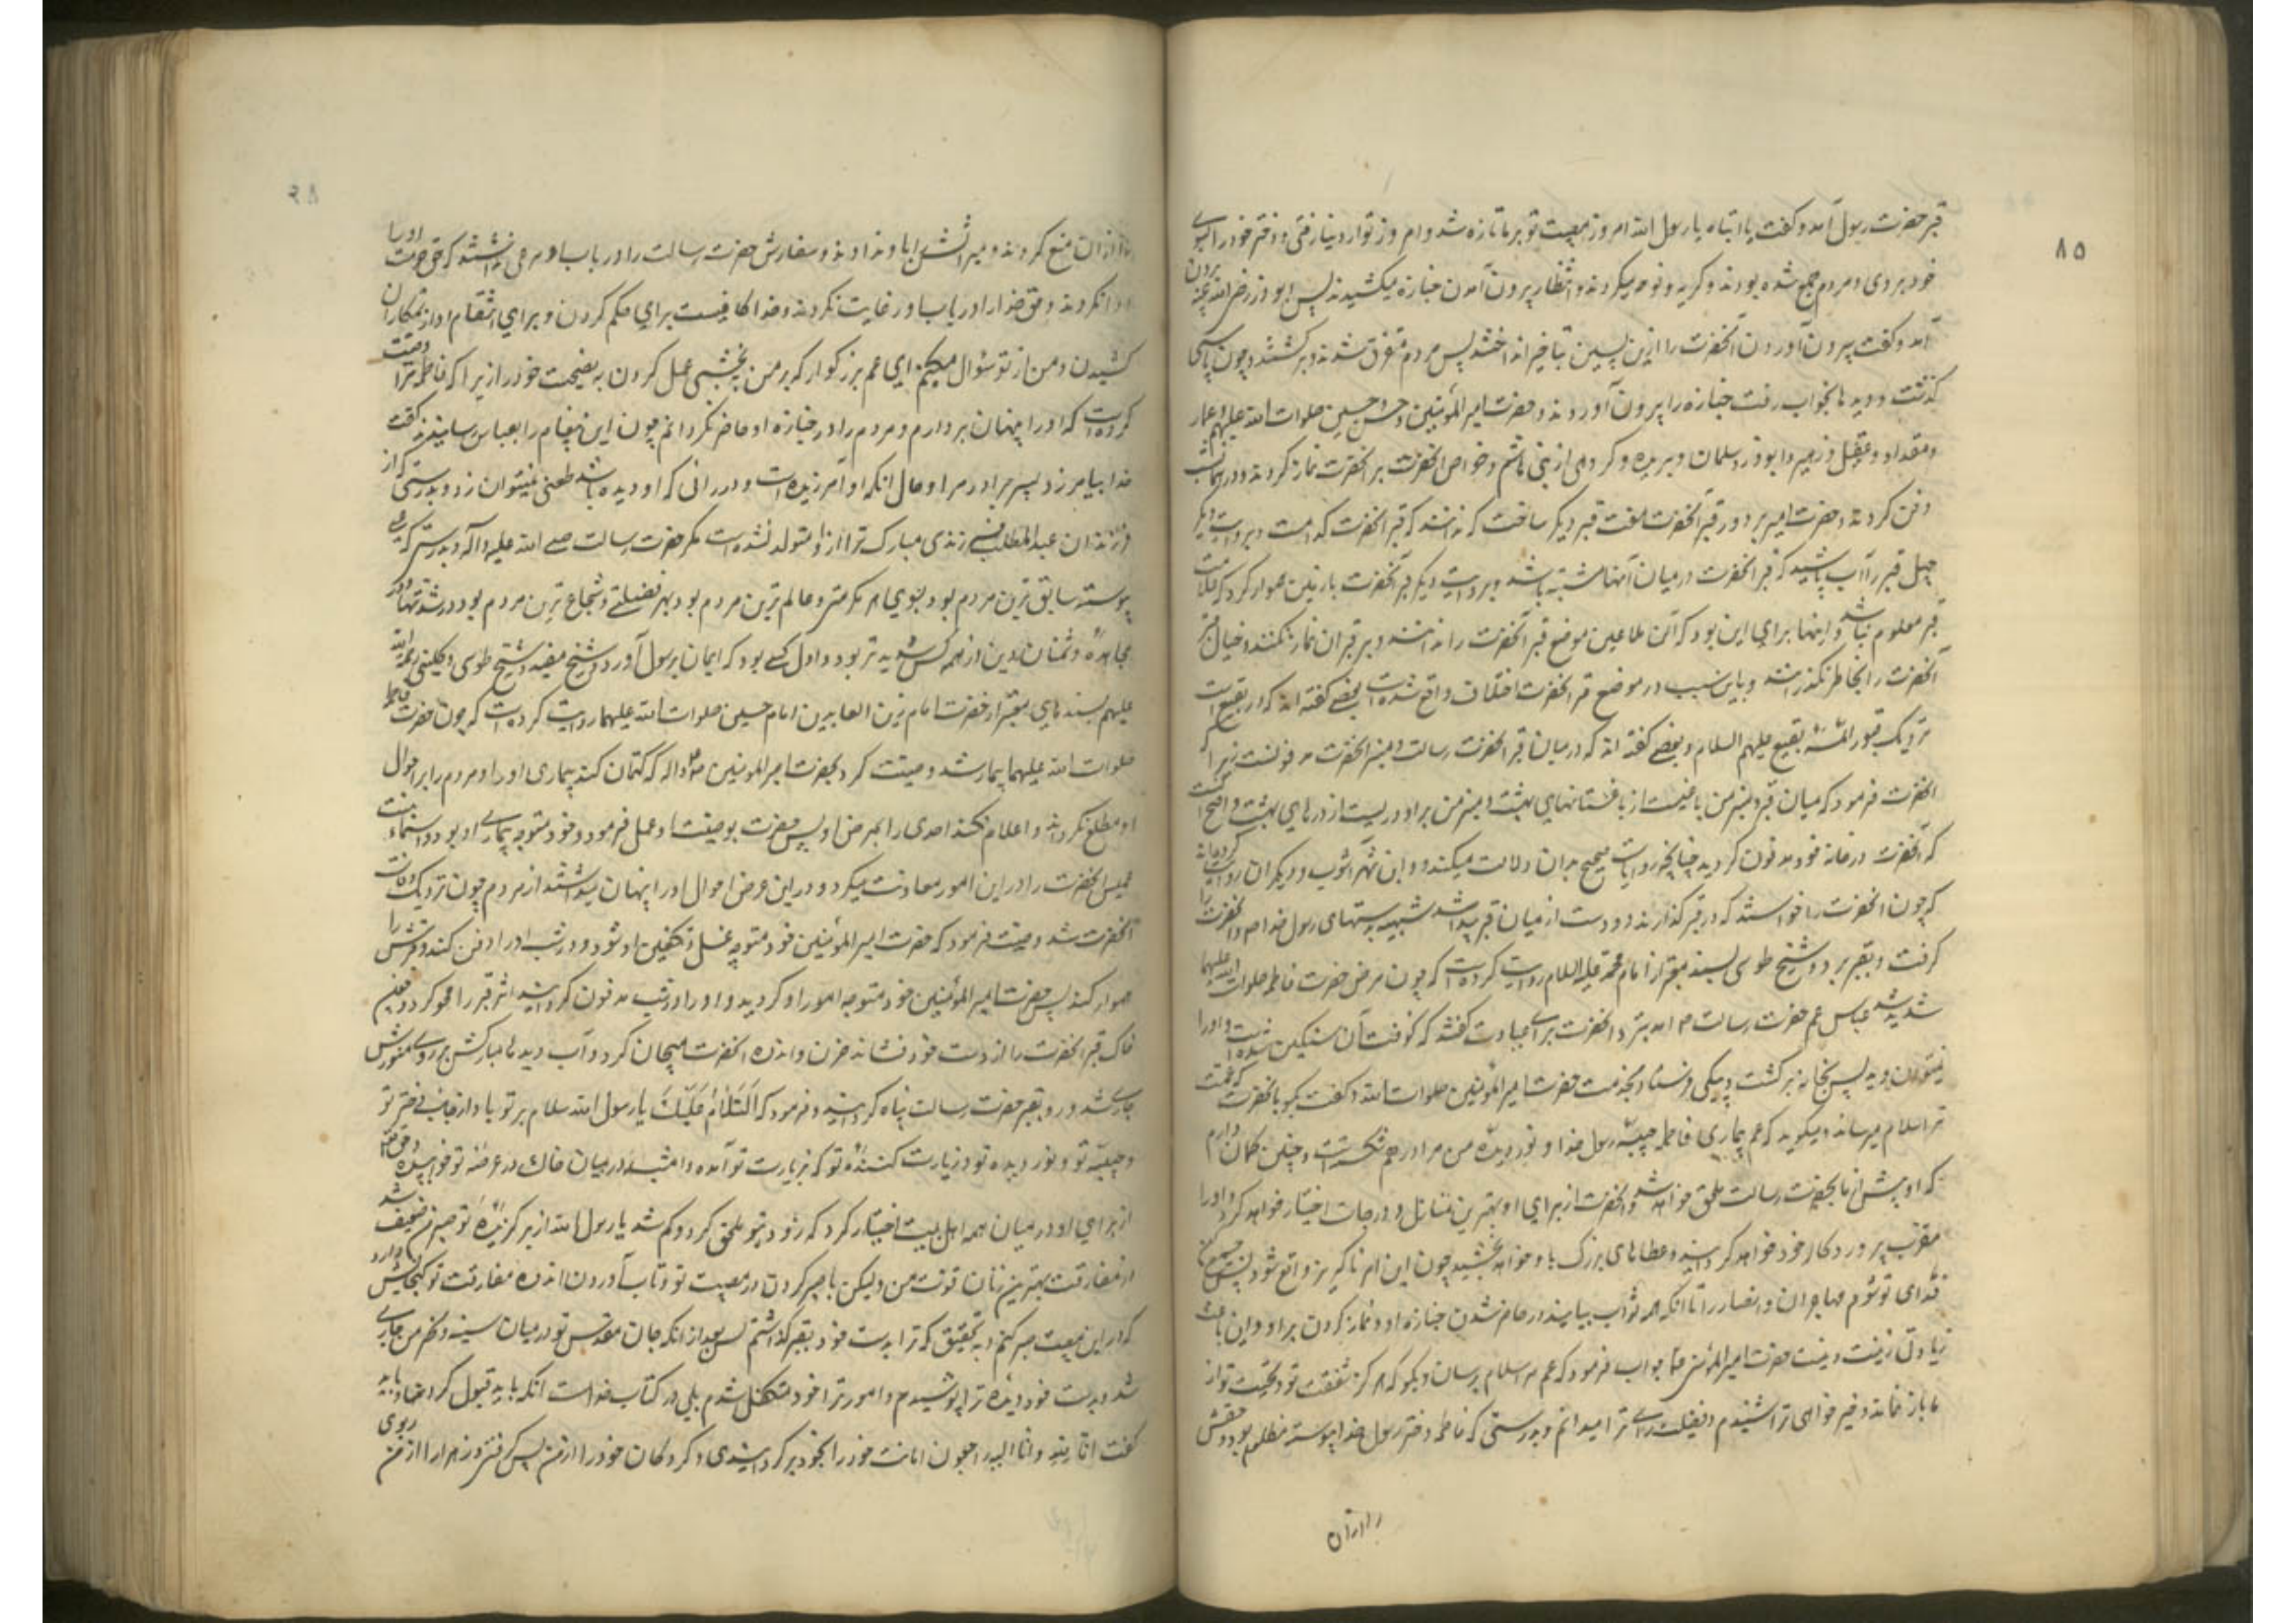 ۸۵
قبر حضرت رسول آمد و گفت یا ابتاه یا رسول الله امروز مصیبت تو بر ما تازه شد و امروز تو از دنیا رفتی و دختر خود را بسوی
خود بردی و مردم جمع شده بودند و گریه و نوحه میکردند و انتظار بیرون آمدن جنازه میکشیدند پس ابوذر رضی الله عنه بیرون
آمد و گفت بیرون آوردن آنحضرت را ازین پسین بتاخیر انداختند پس مردم متفرق شدند و برگشتند و چون پاسی
گذشت و دیدها بخواب رفت جنازه را بیرون آوردند و حضرت امیر المؤمنین و حسن و حسین صلوات الله علیهم و عمار
و مقداد و عقیل و زبیر و ابوذر و سلمان و بریده و گروهی از بنی هاشم و خواص آنحضرت بر آنحضرت نماز کردند و در همان شب
دفن کردند و حضرت امیر بر دور قبر آنحضرت هفت قبر دیگر ساخت که ندانند که قبر آنحضرت کدامست و بروایت دیگر
چهل قبر را آب پاشید که قبر آنحضرت در میان آنها مشتبه باشد و بروایت دیگر قبر آنحضرت با زمین هموار کرد که علامت
قبر معلوم نباشد و اینها برای این بود که آن ملاعین موضع قبر آنحضرت را ندانند و بر قبر ان نماز نکنند و خیال نبش قبر
آنحضرت را بخاطر نگذرانند و باین سبب در موضع قبر آنحضرت اختلاف واقع شده است بعضی گفته اند که در بقیع است
نزدیک قبور ائمهٔ بقیع علیهم السلام و بعضی گفته اند که در میان قبر حضرت رسالت و منبر آنحضرت مدفونست زیرا که
آنحضرت فرمود که میان قبر و منبر من باغیست از باغستانهای بهشت و منبر من بر او دریست از درهای بهشت و اصح آنست
که آنحضرت در خانه خود مدفون گردید چنانچه روایات صحیح بدان دلالت میکند و ابن شهرآشوب و دیگران روایت کرده اند
که چون آنحضرت را خواستند که در قبر گذارند دو دست از میان قبر پیدا شد شبیه بدستهای رسول خدا ص و آنحضرت را
گرفت و بقبر برد و شیخ طوسی بسند معتبر از امام محمد علیه السلام روایت کرده است که چون مرض حضرت فاطمه صلوات الله علیها
شدید شد عباس عم حضرت رسالت ص آمد بنزد آنحضرت برای عیادت گفتند که کوفت آن سنگین شده است و او را
نمیتوان دید پس بخانه برگشت و پیکی فرستاد بخدمت حضرت امیر المؤمنین صلوات الله و گفت بگو بآنحضرت که عمت
ترا سلام میرساند و میگوید که غم بیماری فاطمه حبیبهٔ رسول خدا و نور دیدهٔ من مرا در هم شکسته است و چنین گمان دارم
که او پیش از ما بحضرت رسالت ملحق خواهد شد و آنحضرت از برای او بهترین منازل و درجات اختیار خواهد کرد و او را
مقرب پروردگار خود خواهد گردانید و عطاهای بزرگ باو خواهد بخشید چون این امر ناگریز واقع شود پس جمع کن
فدای تو شوم مهاجران و انصار را تا آنکه همه ثواب بیابند در حاضر شدن جنازه او و نماز کردن بر او و این باعث
زیادتی زینت دینست حضرت امیر المؤمنین در جواب فرمود که عم مرا سلام برسان و بگو که هرگز شفقت تو و محبت تو از
ما باز نماند و خیرخواهی ترا شنیدم و فضیلت رای ترا میدانم و بدرستی که فاطمه دختر رسول خدا پیوسته مظلوم بود و حقش
را از آن
را از آن منع کردند و میراثش را باو ندادند و سفارش حضرت رسالت را در باب او مرعی نداشتند که حق حرمت او را
ادا نکردند و حق خدا را در باب او رعایت نکردند و خدا کافیست برای حکم کردن و برای انتقام او از ستمکاران
کشیدن و من از تو سؤال میکنم ای عم بزرگوار که بر من ببخشی عمل کردن به نصیحت خود را زیرا که فاطمه مرا وصیت
کرده است که او را پنهان بردارم و مردم را در جنازه او حاضر نگردانم چون این پیغام را بعباس رسانیدند گفت
خدا بیامرزد پسر برادر مرا و حال آنکه او آمرزیده است و در رائی که او دیده باشد طعنی نمیتوان زد و بدرستی که از
فرزندان عبدالمطلب فرزندی مبارک تر از او متولد نشده است مگر حضرت رسالت صلی الله علیه و آله و بدرستی که علی
پیوسته سابق ترین مردم بود بسوی هر مکرمتی و عالم ترین مردم بود بهر فضیلتی و شجاع ترین مردم بود در شدتها و در
مجاهدهٔ دشمنان دین از همه کس شدید تر بود و اول کسی بود که ایمان برسول آورد و شیخ مفید و شیخ طوسی و کلینی رحمة الله
علیهم بسندهای معتبر از حضرت امام زین العابدین و امام حسین صلوات الله علیهما روایت کرده است که چون حضرت فاطمه
صلوات الله علیها بیمار شد وصیت کرد بحضرت امیر المؤمنین که کتمان کند بیماری او را و مردم را بر احوال
او مطلع نگرداند و اعلام نکند احدی را بمرض او پس حضرت بوصیت او عمل فرمود و خود متوجه بیماری او بود و اسماء بنت
عمیس آنحضرت را در این امور معاونت میکرد و در این عرض احوال او را پنهان میداشتند از مردم چون نزدیک وفات
آنحضرت شد وصیت فرمود که حضرت امیر المؤمنین خود متوجه غسل و تکفین او شود و در شب او را دفن کند و قبرش را
هموار کند پس حضرت امیر المؤمنین خود متوجه امور او گردید و او را در شب مدفون گردانید و اثر قبر را محو کرد و چون
خاک قبر آنحضرت را از دست خود فشاند حزن و اندوه آنحضرت هیجان کرد و آب دیدهای مبارکش بر روی منورش
جاری شد و رو بقبر حضرت رسالت پناه گردانید و فرمود که السلام علیک یا رسول الله سلام بر تو باد از جانب دختر تو
و حبیبهٔ تو و نور دیده تو و زیارت کنندهٔ تو که بزیارت تو آمده و امشب در میان خاک در عرصهٔ تو خوابیده و حق تعالی
از برای او در میان همه اهل بیت اختیار کرد که زود بتو ملحق گردد و کم شد یا رسول الله از برگزیدهٔ تو صبر من و ضعیف شد
از مفارقت بهترین زنان قوت من و لیکن با صبر کردن در مصیبت تو و تاب آوردن اندوه مفارقت تو گنجایش دارد
که در این مصیبت صبر کنم و به تحقیق که ترا بدست خود بقبر گذاشتم پس بعد از آنکه جان مقدس تو در میان سینه و نحر من جاری
شد و بدست خود دیدهٔ ترا پوشیدم و امور ترا خود متکفل شدم بلی در کتاب خداست آنکه باید قبول کرد و باید
گفت انا لله و انا الیه راجعون امانت خود را بخود برگردانیدی و گروگان خود را از من پس گرفتی و زهرا را از من ربودی